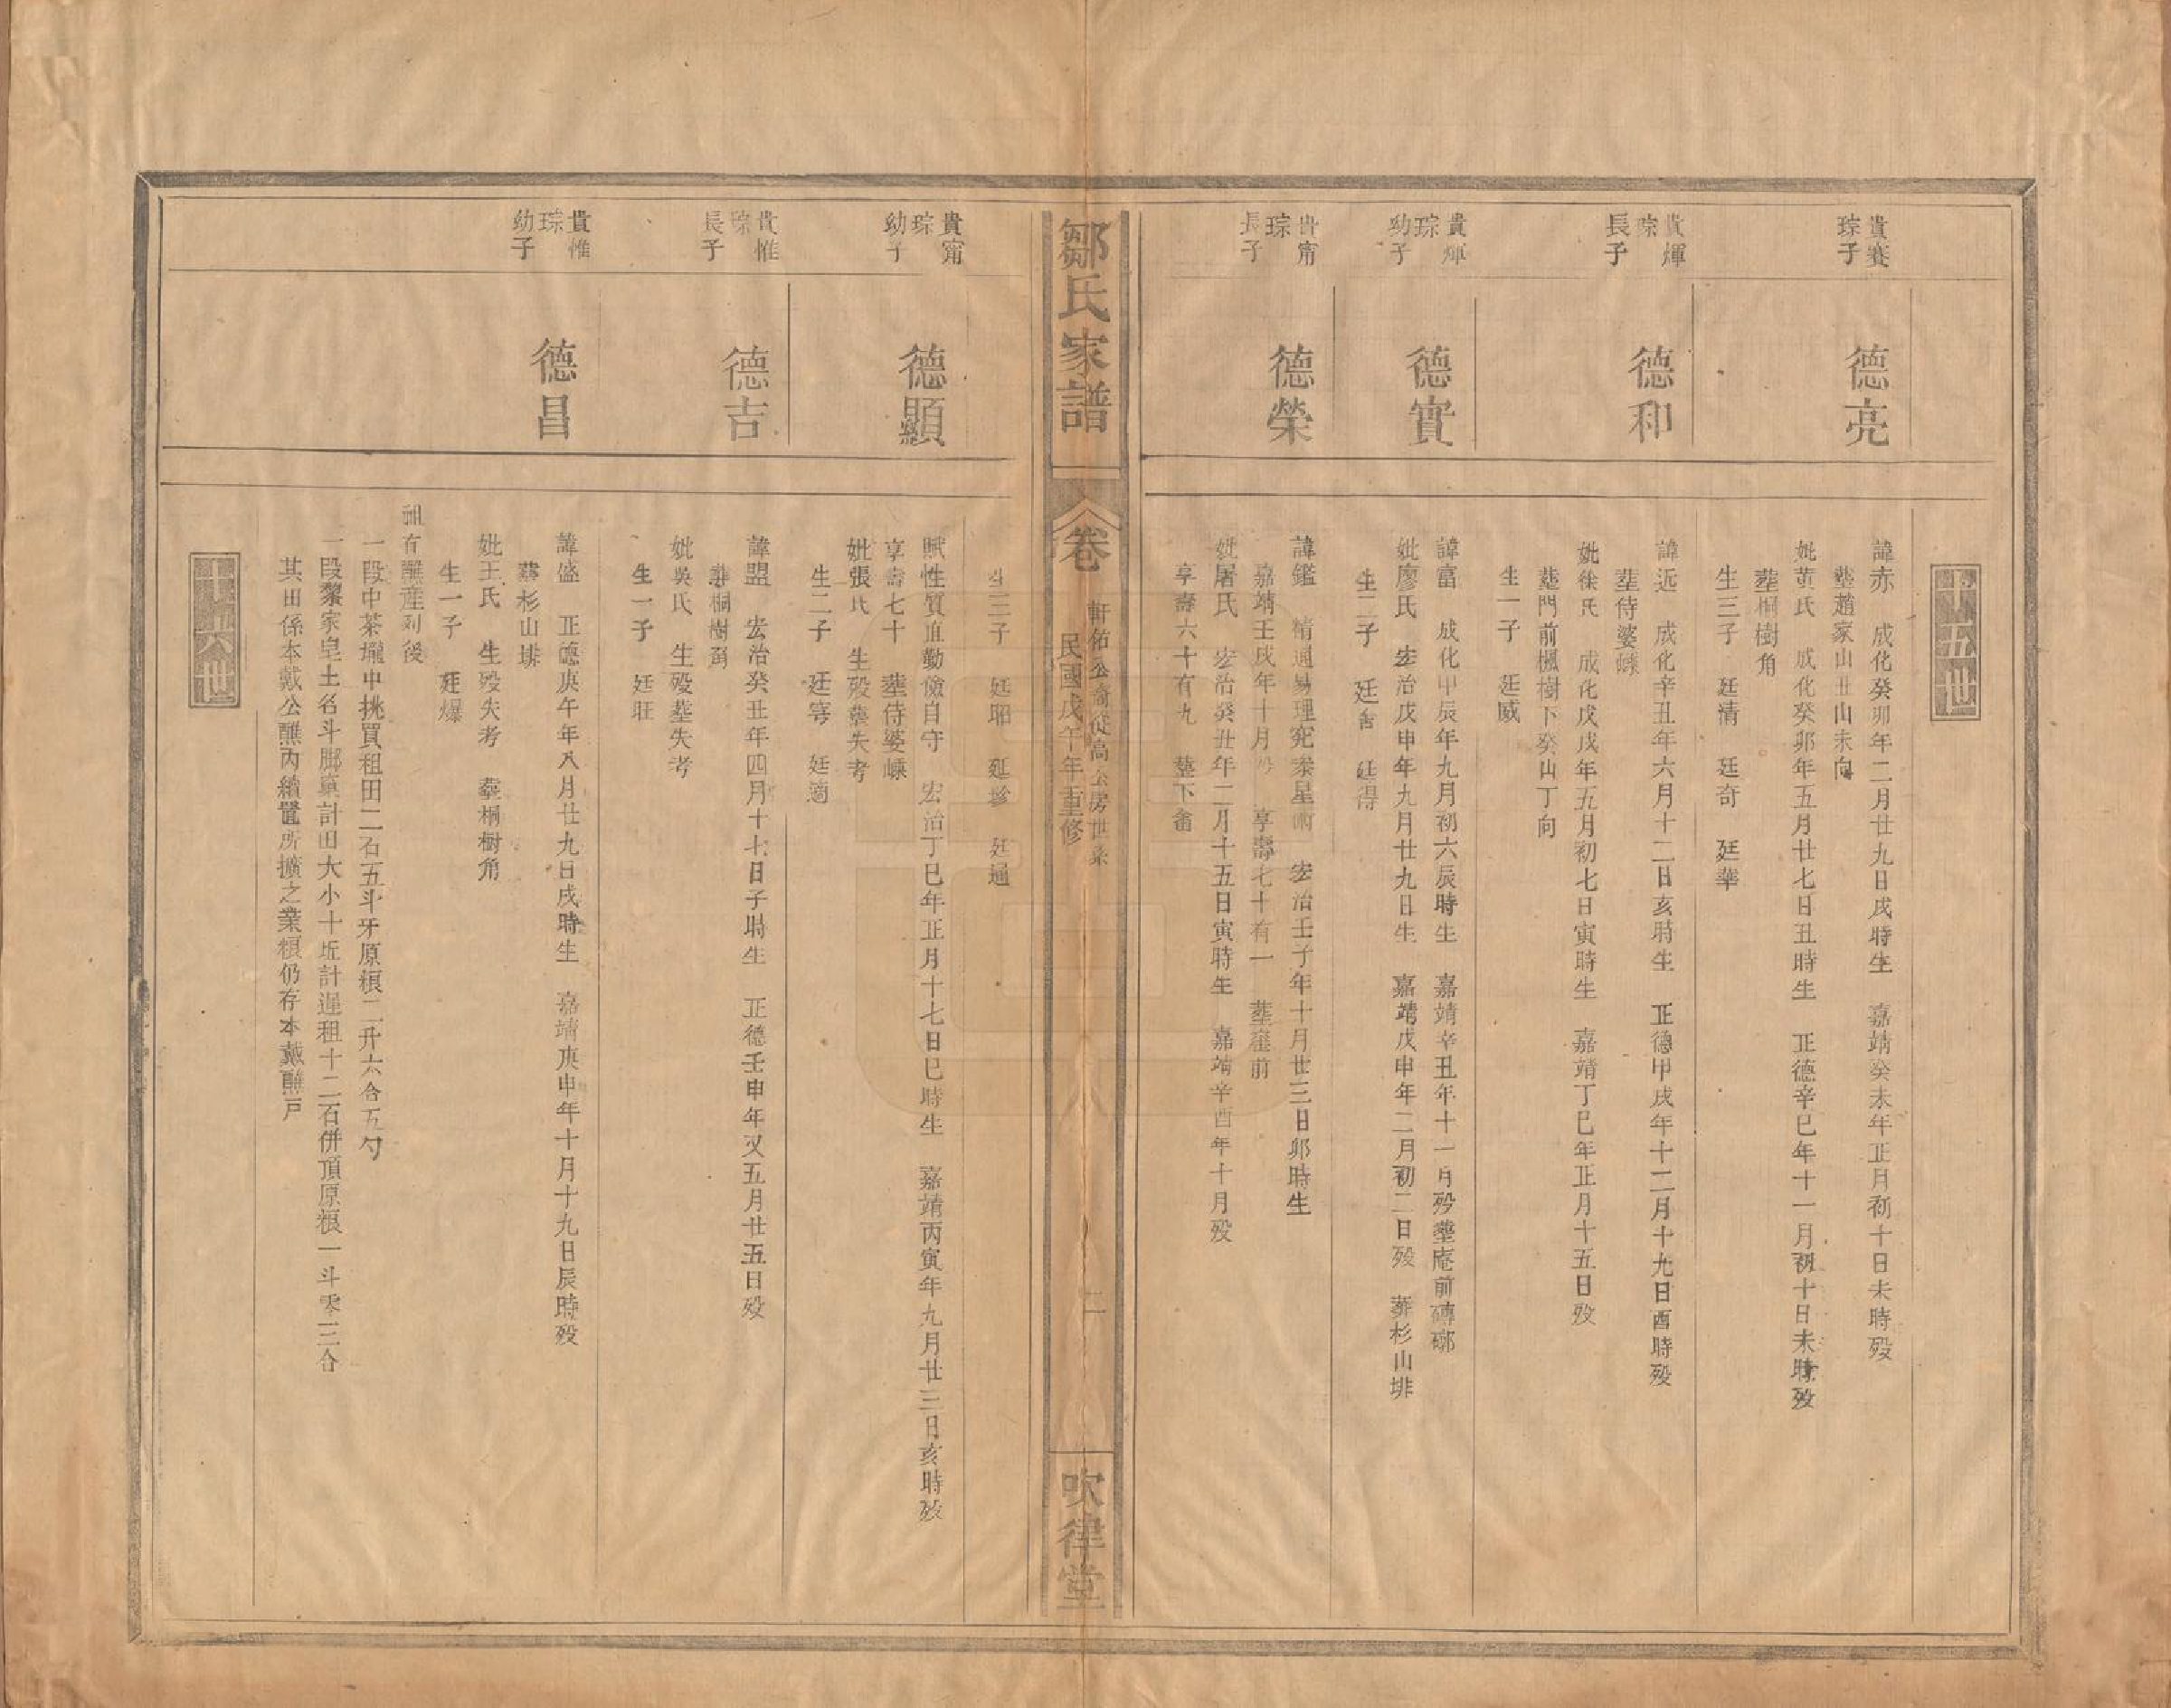 十五世
貴賽
琮子
德亮
諱赤　成化癸卯年二月廿九日戌時生　嘉靖癸未年正月初十日未時歿
塟趙家山丑山未向
妣黄氏　成化癸卯年五月廿七日丑時生　正德辛巳年十一月初十日未時歿
塟桐樹角
生三子　廷清　廷奇　廷華
貴煇
琮
長子
德和
諱远　成化辛丑年六月十二日亥時生　正德甲戌年十二月十九日酉時歿
塟侍婆嵊
妣徐氏　成化戊戌年五月初七日寅時生　嘉靖丁巳年正月十五日歿
塟門前楓樹下癸山丁向
生一子　廷威
貴煇
琮
幼子
德實
諱富　成化甲辰年九月初六辰時生　嘉靖辛丑年十一月歿塟庵前磚
妣廖氏　宏治戊申年九月廿九日生　嘉靖戊申年二月初二日歿　葬杉山排
生二子　廷會　廷得
貴甯
琮
長子
德榮
諱鑑　精通易理究泰星術　宏治壬子年十月廿三日卯時生
嘉靖壬戌年十月歿　享壽七十有一　塟窰前
妣屠氏　宏治癸丑年二月十五日寅時生　嘉靖辛酉年十月歿
享壽六十有九　塟下畬
鄒氏家譜
卷
軒佑公裔從高公房世系
民國戊午年重修
二
吹律堂
生三子　廷昭　廷珍　廷通
貴甯
琮
幼子
德顯
賦性質直勤儉自守　宏治丁巳年正月十七日巳時生　嘉靖丙寅年九月廿三日亥時歿
享壽七十　塟侍婆嵊
妣張氏　生歿塟失考
生二子　廷寄　廷適
貴惟
琮
長子
德吉
諱盟　宏治癸丑年四月十七日子時生　正德壬申年又五月廿五日歿
葬桐樹窩
妣吳氏　生歿塟失考
生一子　廷旺
貴惟
琮
幼子
德昌
諱盛　正德庚午年八月廿九日戌時生　嘉靖庚申年十月十九日辰時歿
塟杉山排
妣王氏　生歿失考　塟桐樹角
生一子　廷爆
祖有醮產列後
一段中茶壠中挑買租田二石五斗牙原粮二升六合五勺
一段黎家皂土名斗脚菓計田大小十坵計還租十二石併頂原粮一斗零三合
其田係本戴公醮內續置所擴之業粮仍存本戴醮戶
十六世